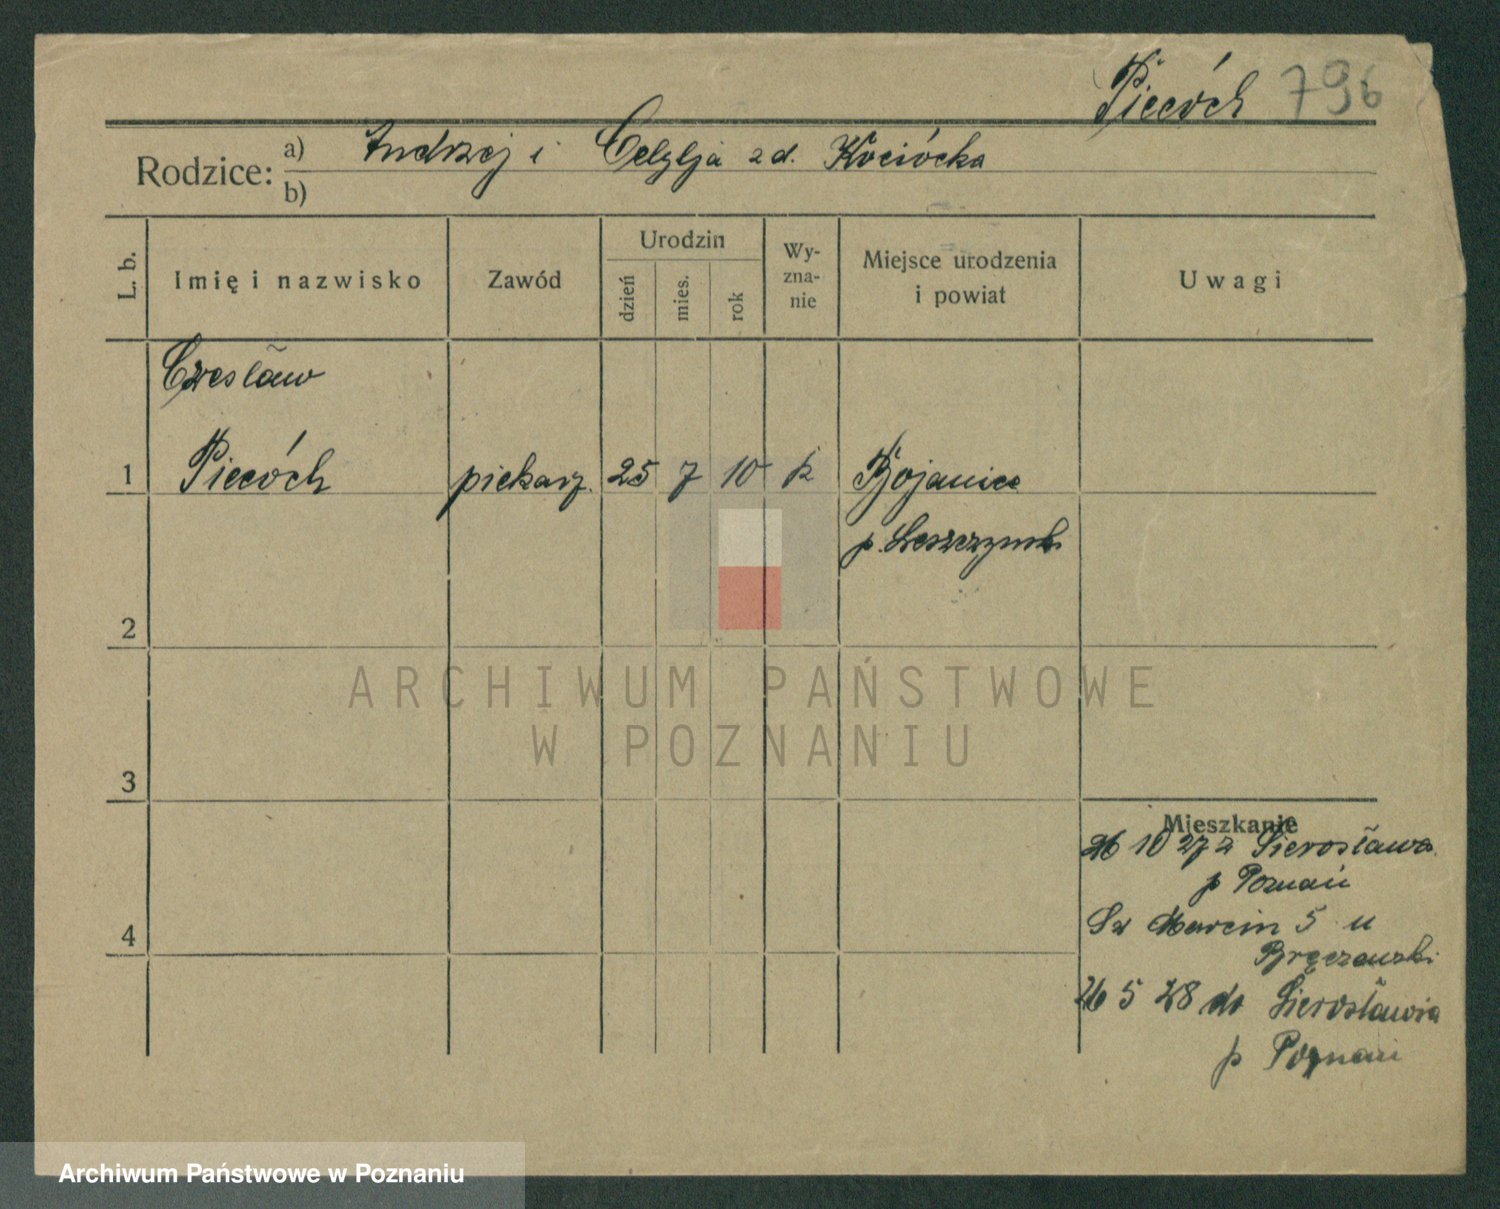 Piecóch 796
Rodzice: a) Andrzej i Celylja zd. Kociócka
b)
L. b.
Imię i nazwisko
Zawód
Urodzin
dzień
mies.
rok
Wy-
zna-
nie
Miejsce urodzenia
i powiat
Uwagi
Czesław
1 Piecóch piekarz. 25 7 10 k Bojanice
p. Leszczyński
2
3
4
ARCHIWUM PAŃSTWOWE
W POZNANIU
Mieszkanie
26 10 27 z Sierosława
p Poznań
Św Marcin 5 u
Bręczewski
26 5 28 do Sierosławia
p Poznań
Archiwum Państwowe w Poznaniu